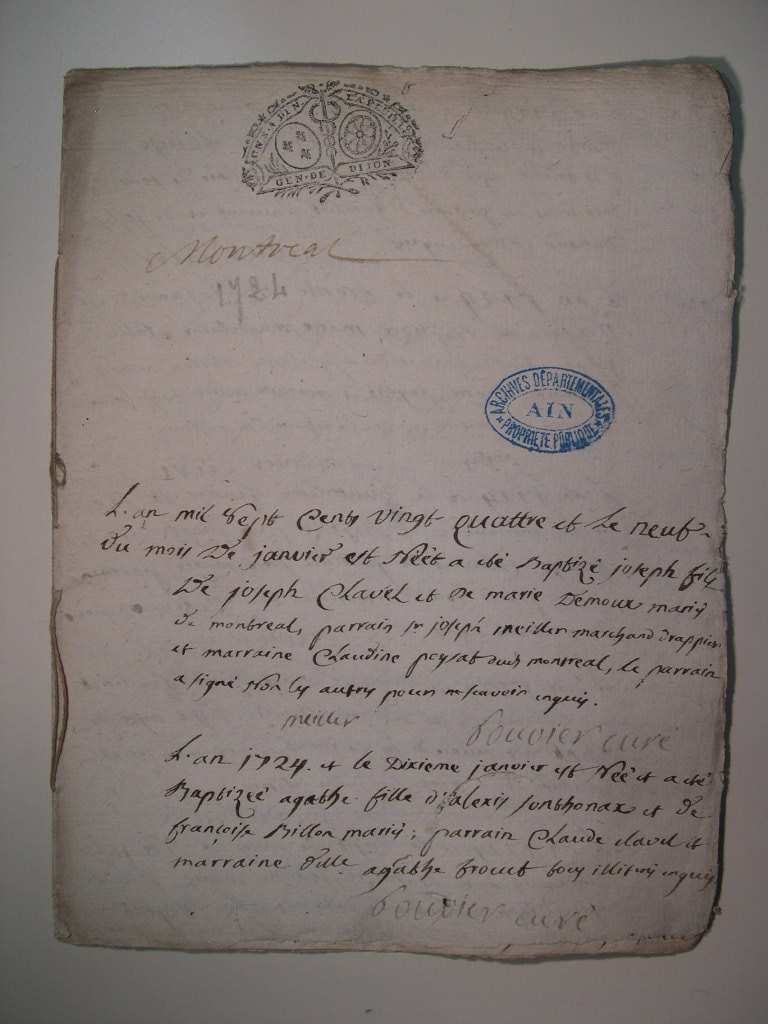 GEN·DE DIJON
Montreal
ARCHIVES DÉPARTEMENTALES
AIN
PROPRIÉTÉ PUBLIQUE
L'an mil sept cents vingt quattre et le neuf
du mois de janvier est née et a eté Baptizé joseph fils
De joseph Clavel et De marie Démoux mariés
de montreal, parrain sr joseph meiller marchand drappier
et marraine Claudine peysat dud montreal, le parrain
a signé non les autres pour ne scavoir enquis.
meiller
bouvier curé
L'an 1724 et le Dixieme janvier est Néé et a eté
Baptizéé agathe fille d'alexis sonthonax et De
françoise Billon mariés; parrain Claude clavel et
marraine agathe tous illiterés enquis
bouvier curé